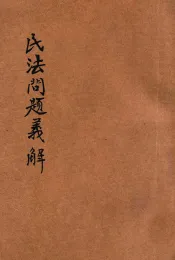 民法問題義解